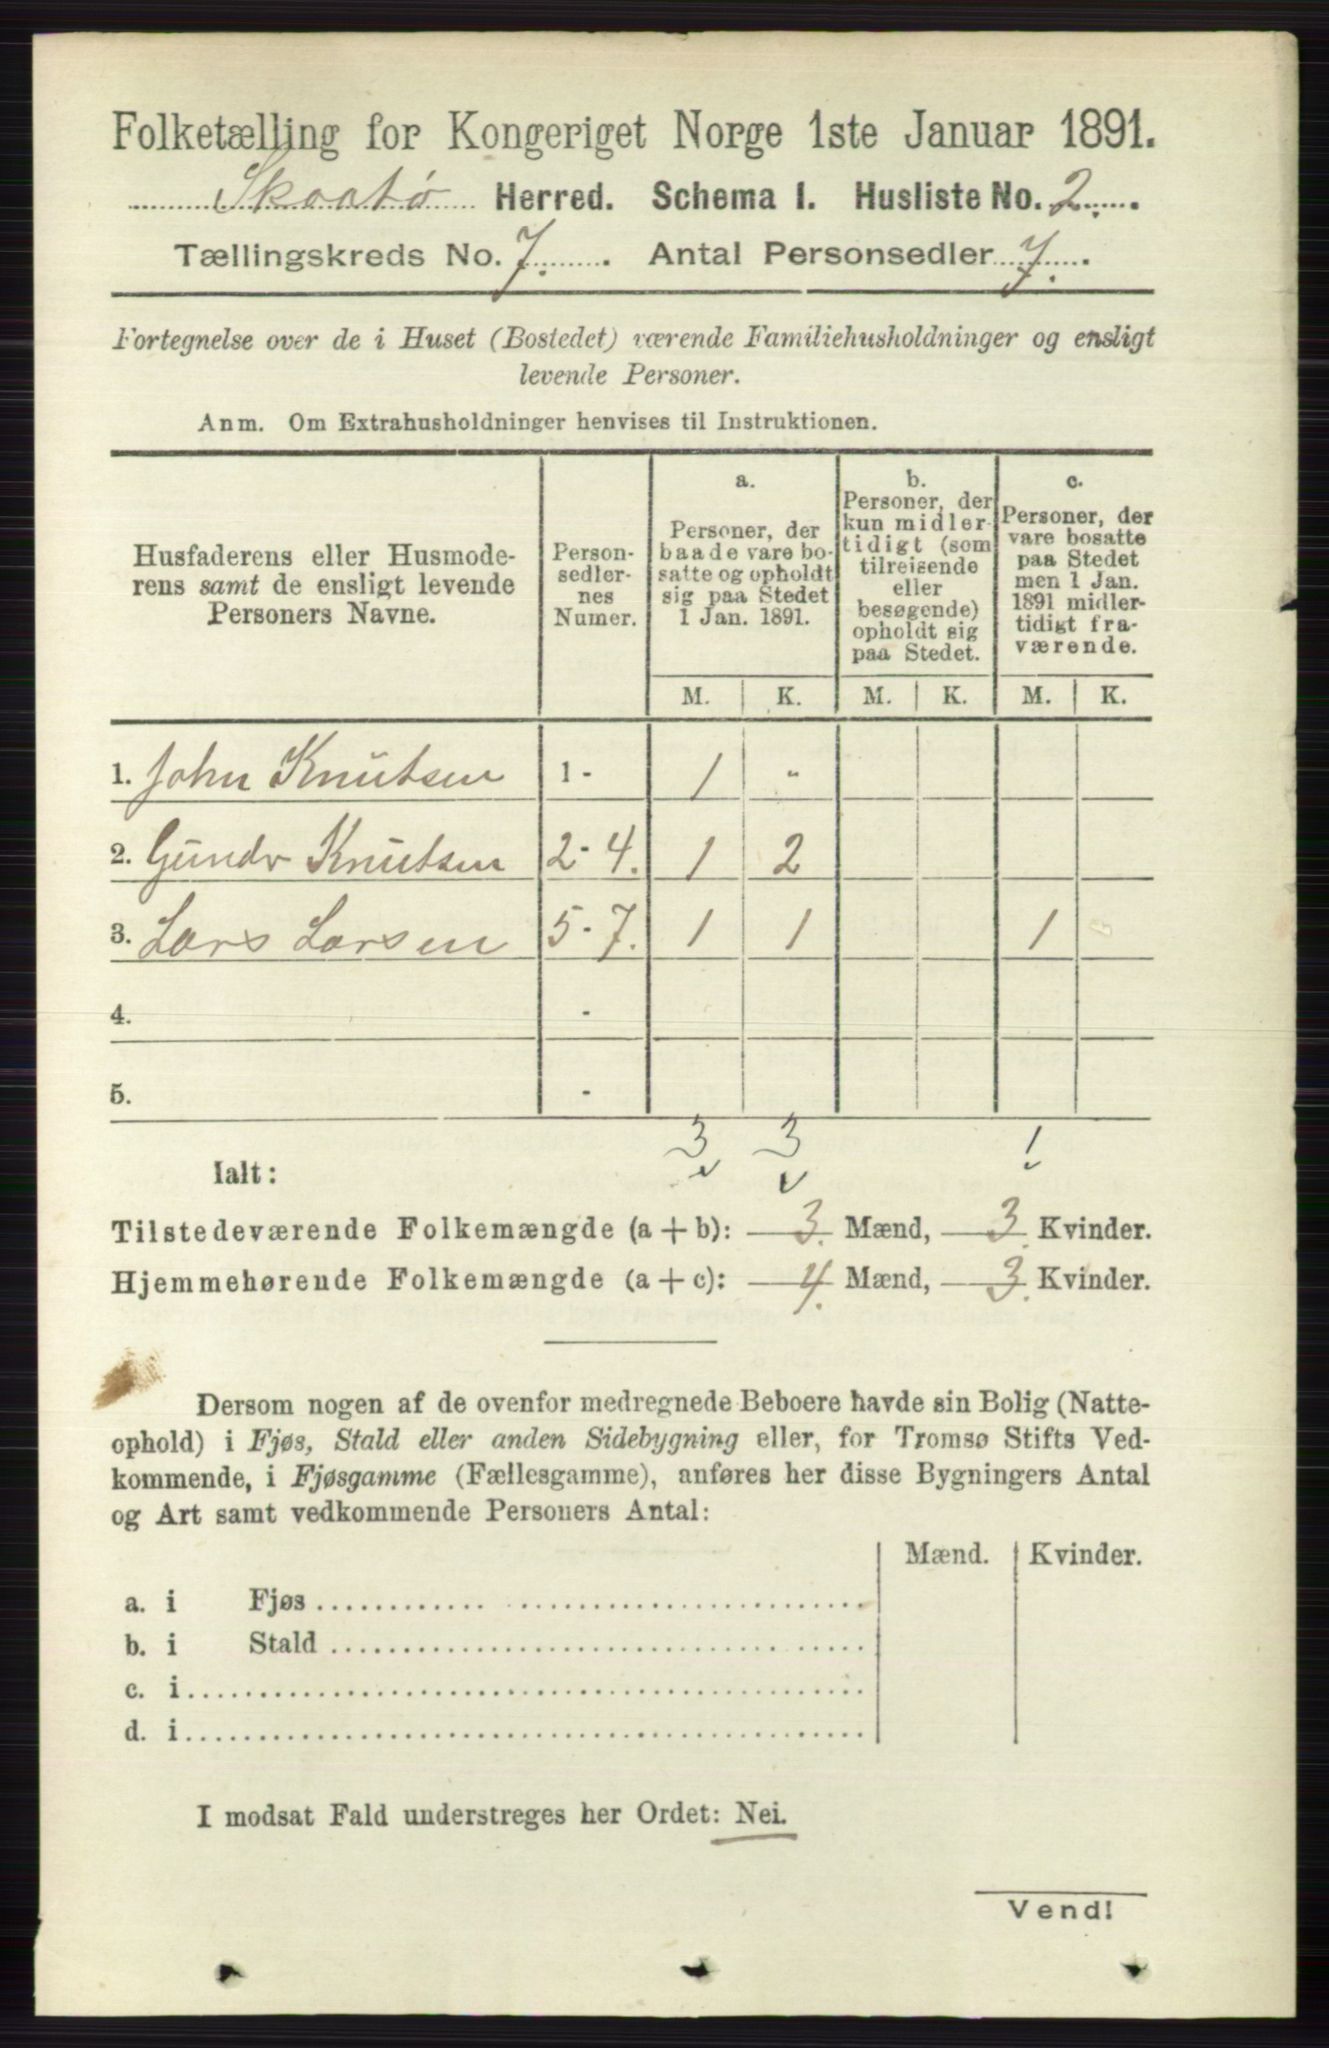 Folketælling for Kongeriget Norge 1ste Januar 1891.
Skaatø Herred. Schema I. Husliste No. 2.
Tællingskreds No. 7. Antal Personsedler 7.
Fortegnelse over de i Huset (Bostedet) værende Familiehusholdninger og ensligt
levende Personer.
Anm. Om Extrahusholdninger henvises til Instruktionen.
Husfaderens eller Husmode-
rens samt de ensligt levende
Personers Navne.
Person-
sedler-
nes
Numer.
a.
Personer, der
baade vare bo-
satte og opholdt
sig paa Stedet
1 Jan. 1891.
b.
Personer, der
kun midler-
tidigt (som
tilreisende
eller
besøgende)
opholdt sig
paa Stedet.
c.
Personer, der
vare bosatte
paa Stedet
men 1 Jan.
1891 midler-
tidigt fra-
værende.
M. K. M. K. M. K.
1. John Knutsen 1 - 1 "
2. Gundr Knutsen 2 - 4. 1 2
3. Lars Larsen 5 - 7. 1 1 1
4. -
5. -
3 3 1
Ialt:
Tilstedeværende Folkemængde (a + b): 3. Mænd, 3. Kvinder.
Hjemmehørende Folkemængde (a + c): 4. Mænd, 3. Kvinder.
Dersom nogen af de ovenfor medregnede Beboere havde sin Bolig (Natte-
ophold) i Fjøs, Stald eller anden Sidebygning eller, for Tromsø Stifts Ved-
kommende, i Fjøsgamme (Fællesgamme), anføres her disse Bygningers Antal
og Art samt vedkommende Personers Antal:
Mænd. Kvinder.
a. i Fjøs
b. i Stald
c. i
d. i
I modsat Fald understreges her Ordet: Nei.
Vend!